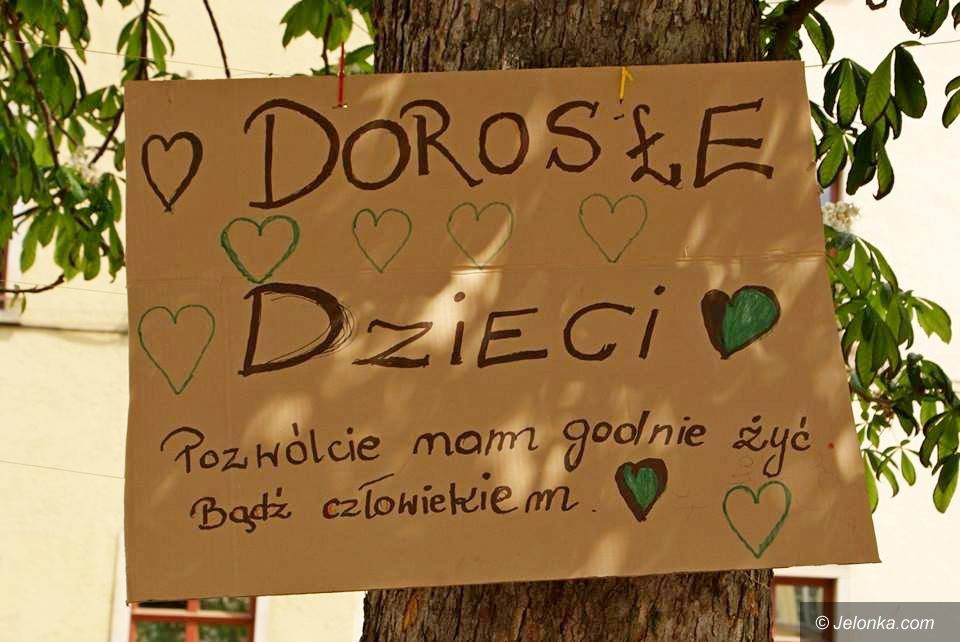 DOROSŁE
DZIECI
Pozwólcie nam godnie żyć
Bądź człowiekiem.
© Jelonka.com